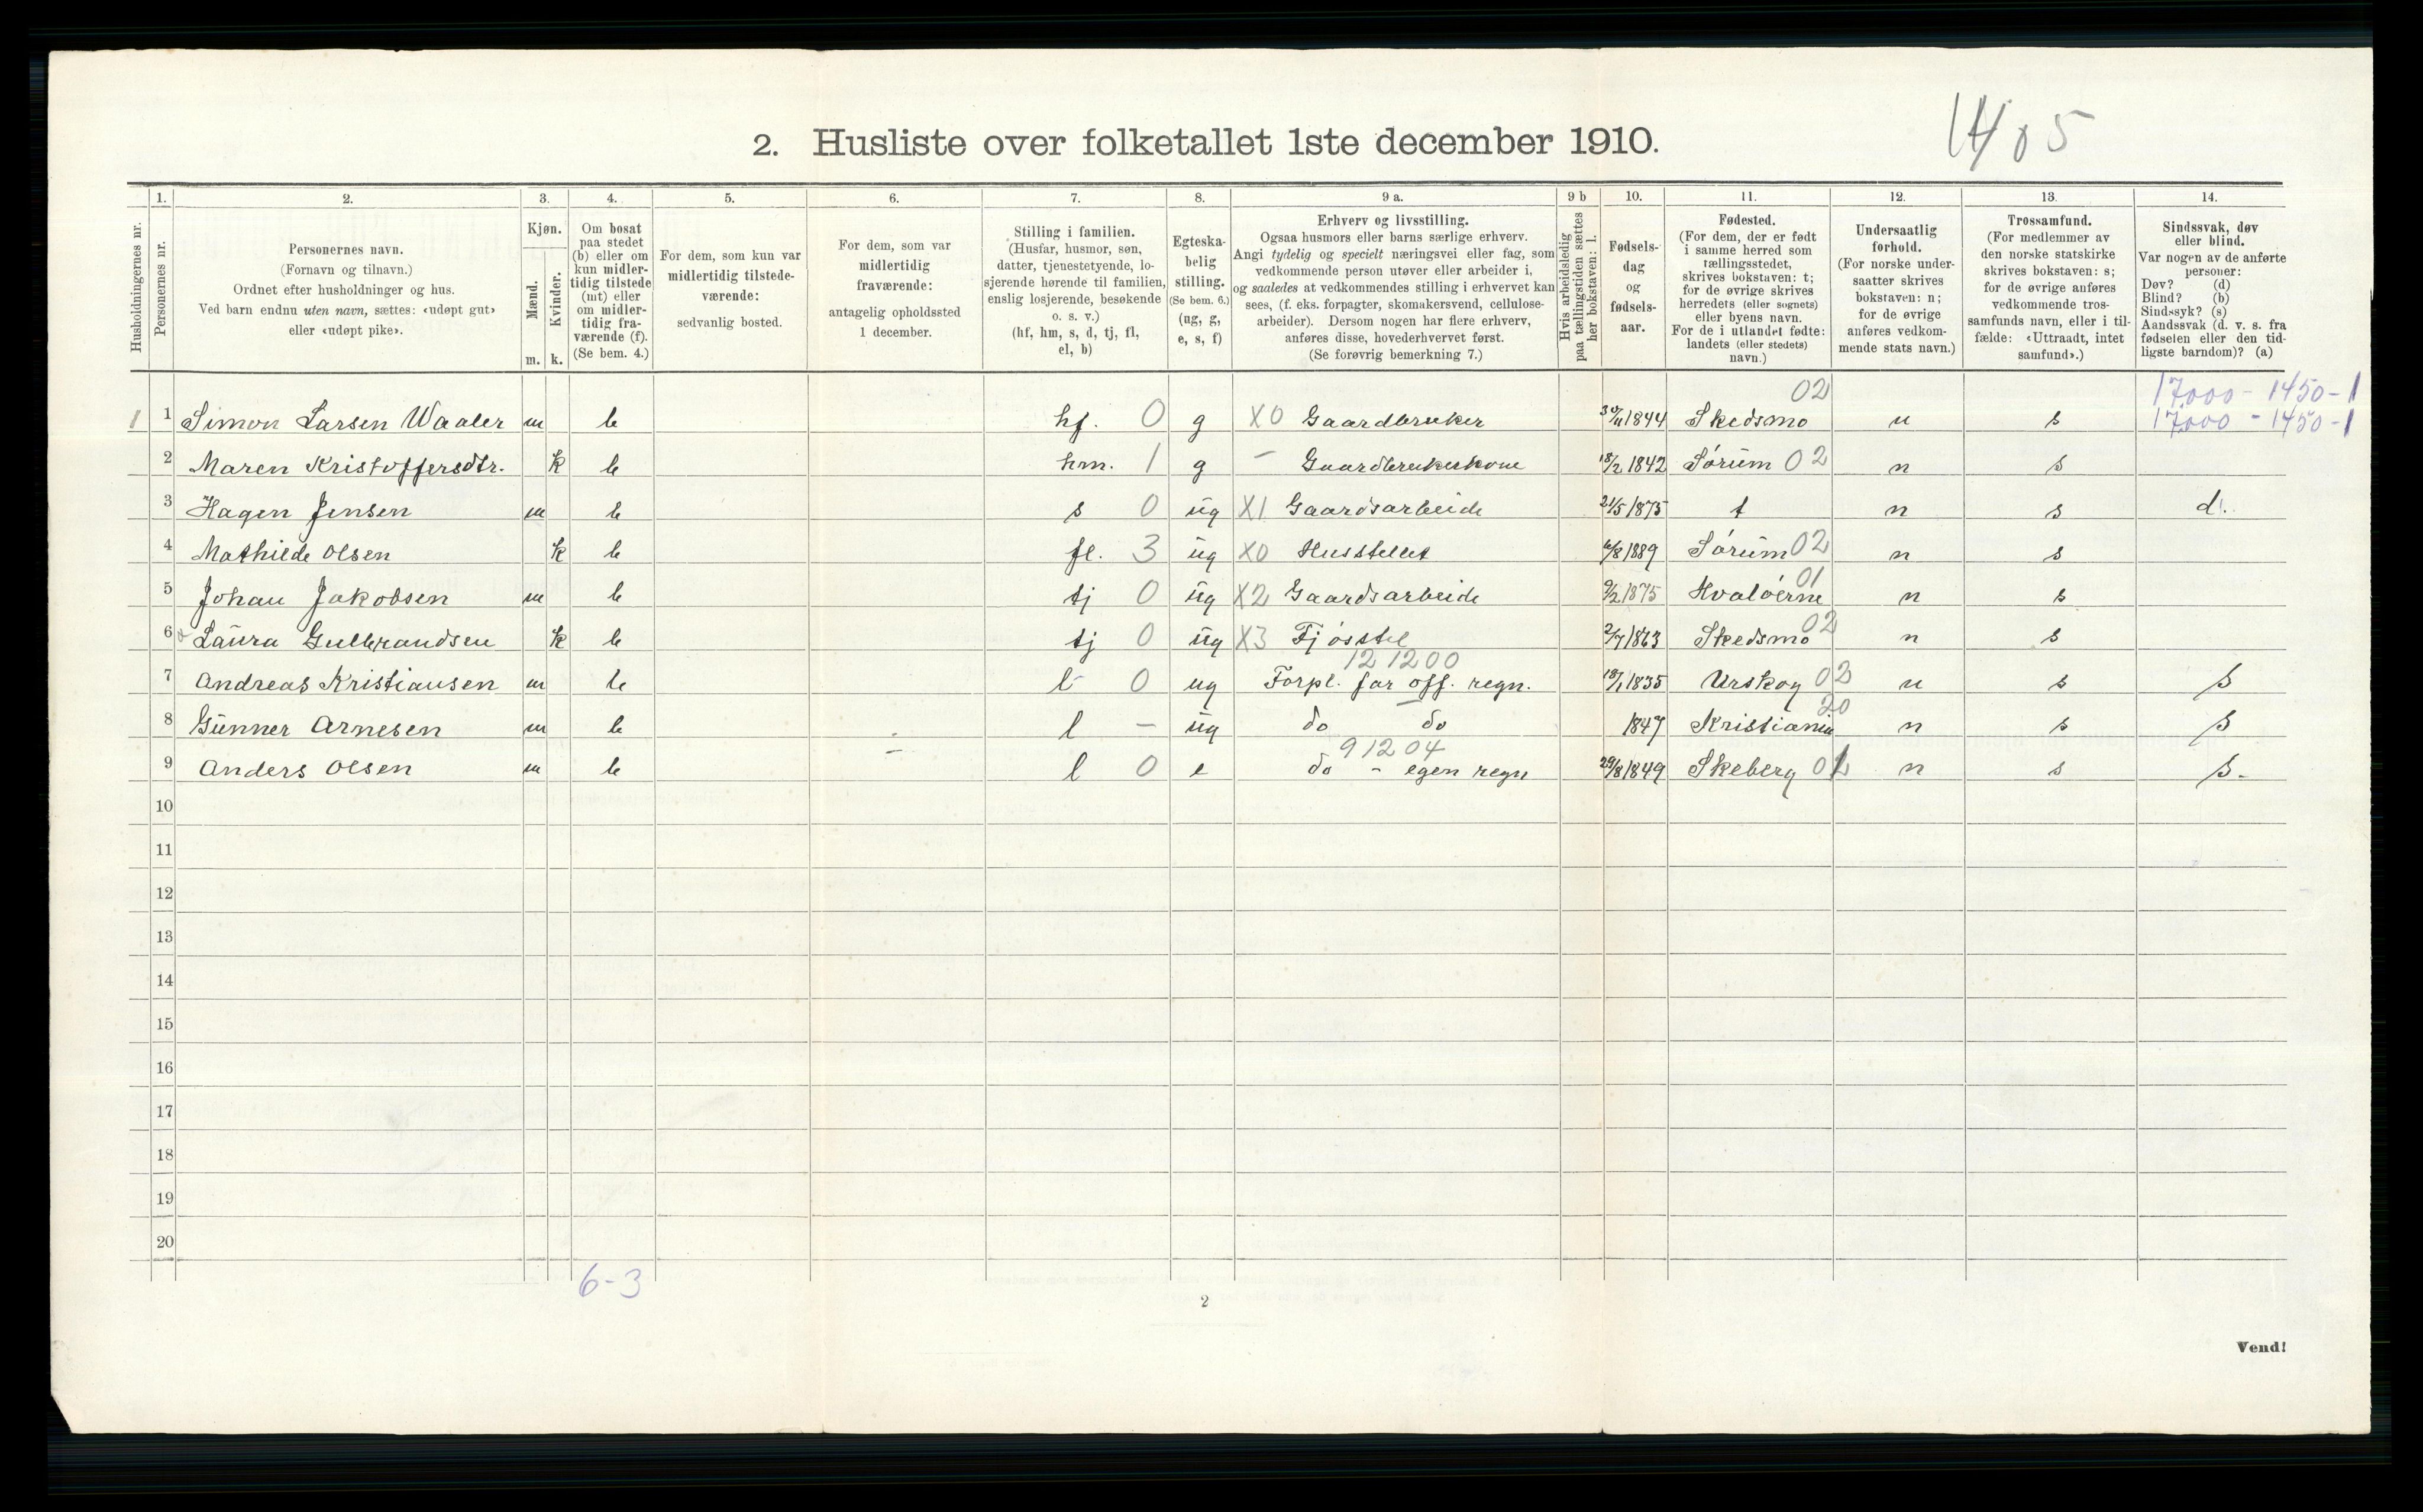 1405
2. Husliste over folketallet 1ste december 1910.
Husholdningernes nr.
1. Personernes nr.
2. Personernes navn. (Fornavn og tilnavn.) Ordnet efter husholdninger og hus. Ved barn endnu uten navn, sættes: «udøpt gut» eller «udøpt pike».
3. Kjøn. Mænd. m. Kvinder. k.
4. Om bosat paa stedet (b) eller om kun midlertidig tilstede (mt) eller om midlertidig fraværende (f). (Se bem. 4.)
5. For dem, som kun var midlertidig tilstedeværende: sedvanlig bosted.
6. For dem, som var midlertidig fraværende: antagelig opholdssted 1 december.
7. Stilling i familien. (Husfar, husmor, søn, datter, tjenestetyende, losjerende hørende til familien, enslig losjerende, besøkende o. s. v.) (hf, hm, s, d, tj, fl, el, b)
8. Egteskabelig stilling. (Se bem. 6.) (ug, g, e, s, f)
9 a. Erhverv og livsstilling. Ogsaa husmors eller barns særlige erhverv. Angi tydelig og specielt næringsvei eller fag, som vedkommende person utøver eller arbeider i, og saaledes at vedkommendes stilling i erhvervet kan sees, (f. eks. forpagter, skomakersvend, cellulosearbeider). Dersom nogen har flere erhverv, anføres disse, hovederhvervet først. (Se forøvrig bemerkning 7.)
9 b Hvis arbeidsledig paa tællingstiden sættes her bokstaven: l.
10. Fødselsdag og fødselsaar.
11. Fødested. (For dem, der er født i samme herred som tællingsstedet, skrives bokstaven: t; for de øvrige skrives herredets (eller sognets) eller byens navn. For de i utlandet fødte: landets (eller stedets) navn.)
12. Undersaatlig forhold. (For norske undersaatter skrives bokstaven: n; for de øvrige anføres vedkommende stats navn.)
13. Trossamfund. (For medlemmer av den norske statskirke skrives bokstaven: s; for de øvrige anføres vedkommende trossamfunds navn, eller i tilfælde: «Uttraadt, intet samfund».)
14. Sindssvak, døv eller blind. Var nogen av de anførte personer: Døv? (d) Blind? (b) Sindssyk? (s) Aandssvak (d. v. s. fra fødselen eller den tidligste barndom)? (a)
02 17,000 - 1450 - 1
1 1 Simon Larsen Waaler m b hf. 0 g X0 Gaardbruker 30/11 1844 Skedsmo n s 17,000 - 1450 - 1
2 Maren Kristoffersdtr. k b hm. 1 g - Gaardbrukerkone 18/2 1842 Sørum 02 n s
3 Hagen Jensen m b s 0 ug X1 Gaardsarbeide 21/5 1875 t n s d.
4 Mathilde Olsen k b fl. 3 ug X0 Husstellet 6/8 1889 Sørum 02 n s
5 Johan Jakobsen m b tj 0 ug X2 Gaardsarbeide 9/2 1875 Hvaløerne 01 n s
6 Laura Gulbrandsen k b tj 0 ug X3 Fjøsstel 2/7 1863 Skedsmo 02 n s
121200
7 Andreas Kristiansen m b l 0 ug Forpl. for off. regn. 18/1 1835 Urskog 02 n s s
8 Gunner Arnesen m b l - ug do do 1847 Kristiania 20 n s s
91204
9 Anders Olsen m b l 0 e do - egen regn 29/8 1849 Skeberg n s s.
10
11
12
13
14
15
16
17
18
19
20
6-3
2
Vend!